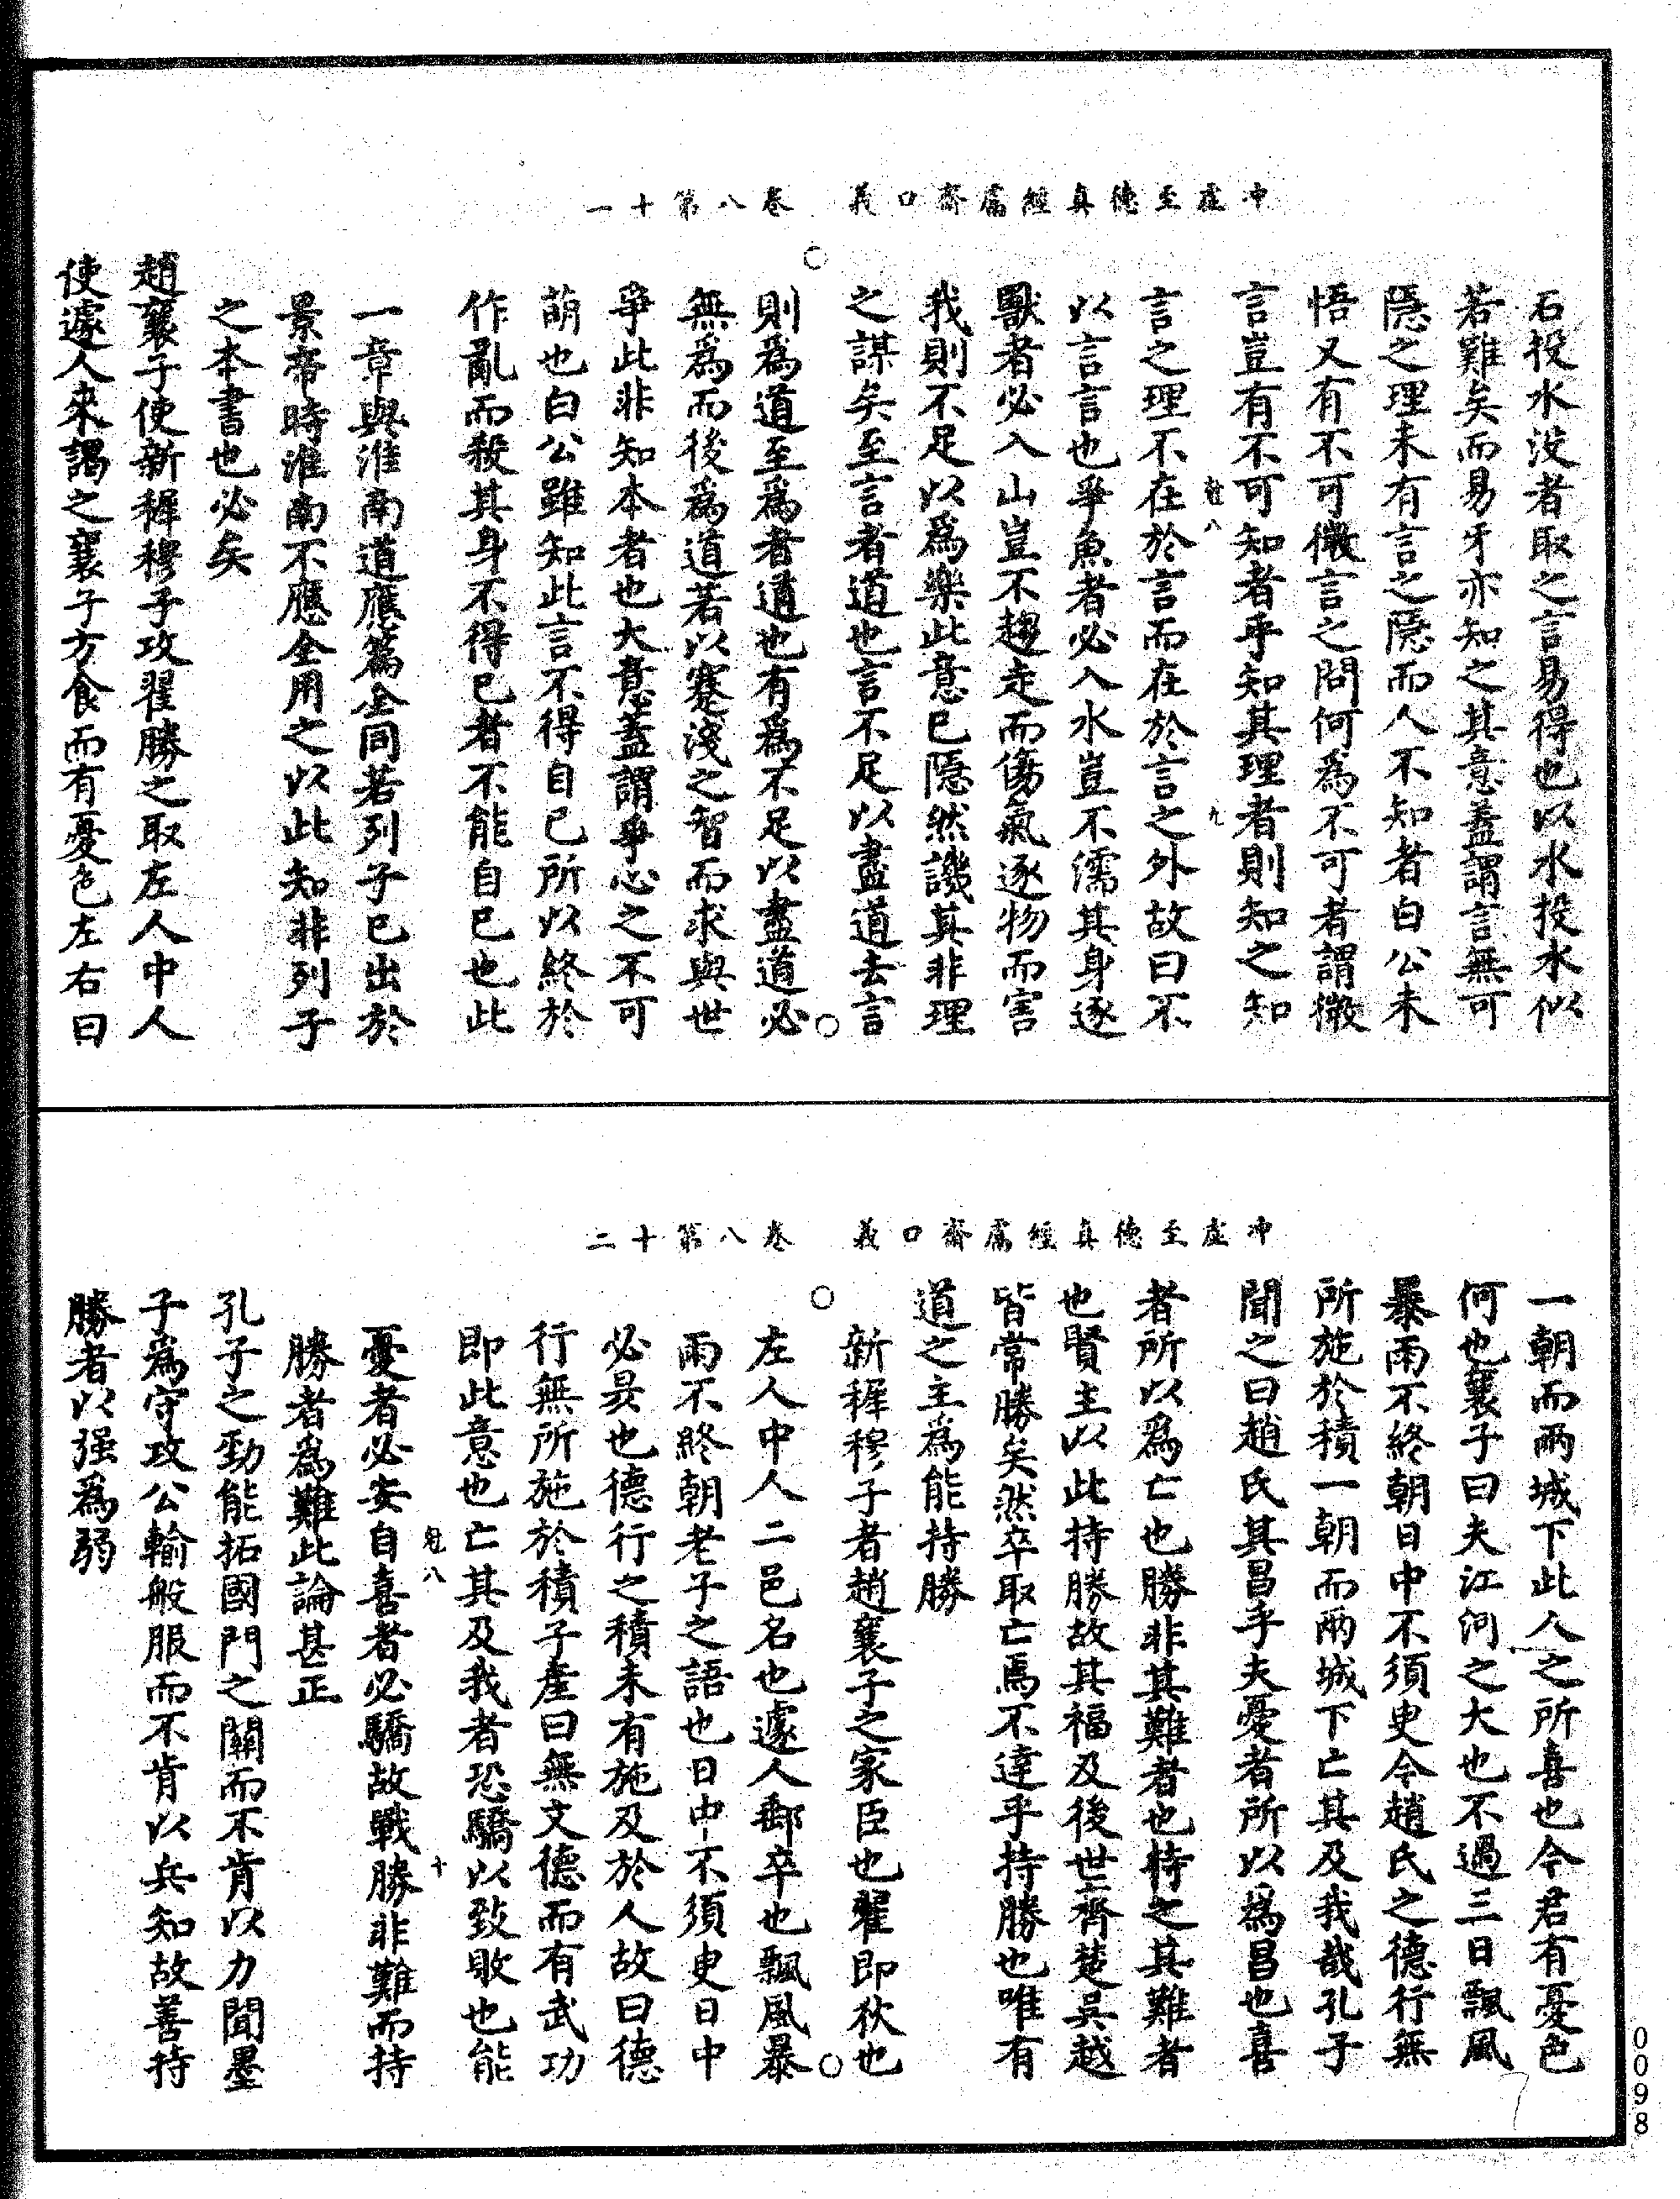 冲虛至德真經鬳齋口義　卷八第十一
石投水没者取之言易得也以水投水似
若難矣而易牙亦知之其意蓋謂言無可
隱之理未有言之隱而人不知者白公未
悟又有不可微言之問何為不可者謂微
言豈有不可知者乎知其理者則知之知
魁八　九
言之理不在於言而在於言之外故曰不
以言言也爭魚者必入水豈不濡其身逐
獸者必入山豈不趨走而傷氣逐物而害
我則不足以爲樂此意已隱然譏其非理
之謀矣至言者道也言不足以盡道去言
則爲道至爲者道也有爲不足以盡道必
無爲而後爲道若以蹇淺之智而求與世
爭此非知本者也大意蓋謂爭心之不可
萌也白公雖知此言不得自已所以終於
作亂而殺其身不得已者不能自已也此
一章與淮南道應篇全同若列子已出於
景帝時淮南不應全用之以此知非列子
之本書也必矣
趙襄子使新穉穆子攻翟勝之取左人中人
使遽人來謁之襄子方食而有憂色左右曰
冲虛至德真經鬳齋口義　卷八第十二
一朝而兩城下此人之所喜也今君有憂色
何也襄子曰夫江河之大也不過三日飄風
暴雨不終朝日中不須臾今趙氏之德行無
所施於積一朝而兩城下亡其及我哉孔子
聞之曰趙氏其昌乎夫憂者所以爲昌也喜
者所以爲亡也勝非其難者也持之其難者
也賢主以此持勝故其福及後世齊楚吳越
皆常勝矣然卒取亡焉不達乎持勝也唯有
道之主爲能持勝
新穉穆子者趙襄子之家臣也翟即狄也
左人中人二邑名也遽人郵卒也飄風暴
雨不終朝老子之語也日中不須臾日中
必昃也德行之積未有施及於人故曰德
行無所施於積子産曰無文德而有武功
即此意也亡其及我者恐驕以致敗也能
魁八　十
憂者必安自喜者必驕故戰勝非難而持
勝者爲難此論甚正
孔子之勁能拓國門之關而不肯以力聞墨
子爲守攻公輸般服而不肯以兵知故善持
勝者以强爲弱
0098